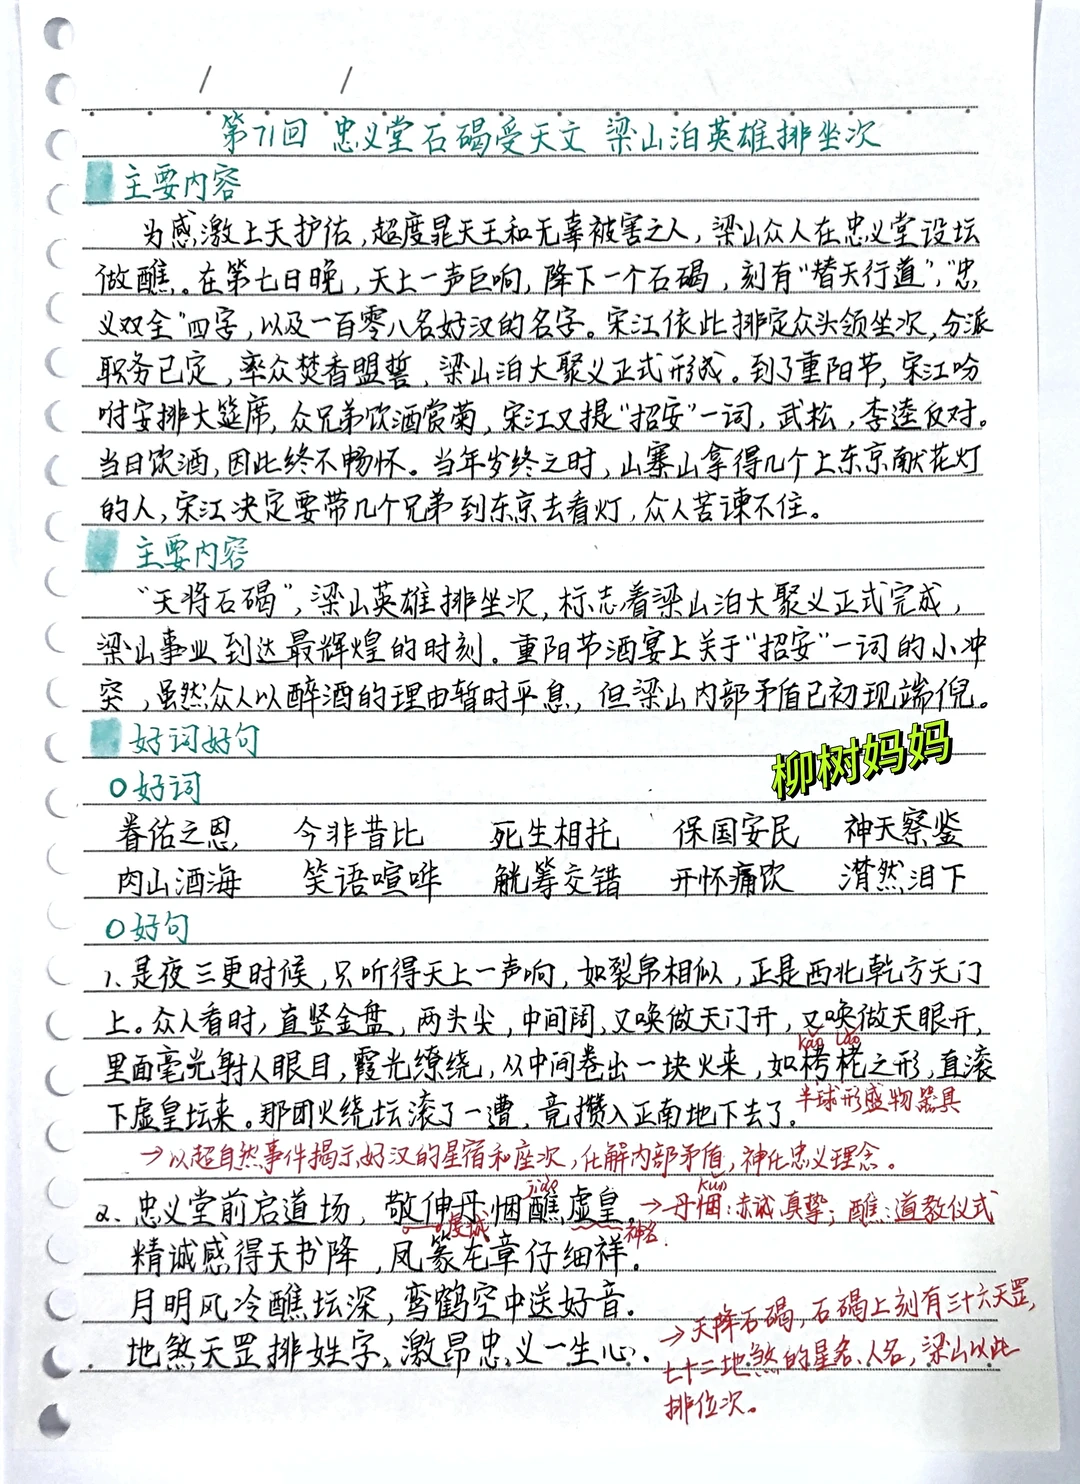 第71回 忠义堂石碣受天文 梁山泊英雄排坐次
主要内容
为感激上天护佑,超度晁天王和无辜被害之人,梁山众人在忠义堂设坛
做醮。在第七日晚,天上一声巨响,降下一个石碣,刻有“替天行道”,“忠
义双全”四字,以及一百零八名好汉的名字。宋江依此排定众头领坐次,分派
职务已定,率众焚香盟誓,梁山泊大聚义正式形成。到了重阳节,宋江吩
咐安排大筵席,众兄弟饮酒赏菊,宋江又提“招安”一词,武松,李逵反对。
当日饮酒,因此终不畅怀。当年岁终之时,山寨山拿得几个上东京献花灯
的人,宋江决定要带几个兄弟到东京去看灯,众人苦谏不住。
主要内容
“天将石碣”,梁山英雄排坐次,标志着梁山泊大聚义正式完成,
梁山事业到达最辉煌的时刻。重阳节酒宴上关于“招安”一词的小冲
突,虽然众人以醉酒的理由暂时平息,但梁山内部矛盾已初现端倪。
好词好句
柳树妈妈
○好词
眷佑之恩 今非昔比 死生相托 保国安民 神天察鉴
肉山酒海 笑语喧哗 觥筹交错 开怀痛饮 潸然泪下
○好句
1、是夜三更时候,只听得天上一声响,如裂帛相似,正是西北乾方天门
上。众人看时,直竖金盘,两头尖,中间阔,又唤做天门开,又唤做天眼开,
kǎo lǎo
里面毫光射人眼目,霞光缭绕,从中间卷出一块火来,如栲栳之形,直滚
半球形盛物器具
下虚皇坛来。那团火绕坛滚了一遭,竟攒入正南地下去了。
→以超自然事件揭示好汉的星宿和座次,化解内部矛盾,神化忠义理念。
jiào
kǔn
2、忠义堂前启道场,敬伸丹悃醮虚皇。→丹悃:赤诚真挚;醮:道教仪式
虔诚 神名.
精诚感得天书降,凤篆龙章仔细祥。
月明风冷醮坛深,鸾鹤空中送好音.
地煞天罡排姓字,激昂忠义一生心.
→天降石碣,石碣上刻有三十六天罡,
七十二地煞的星名、人名,梁山以此
排位次。